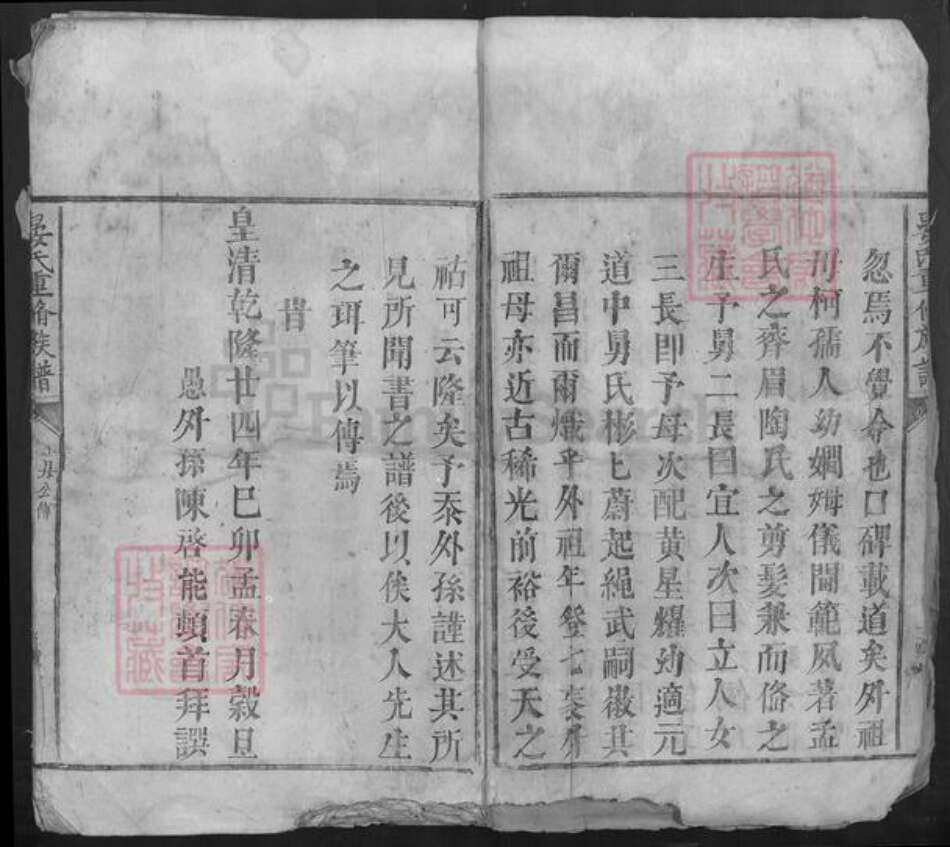 忽焉不覺今也口碑載道矣外祖
母柯孺人幼嫻姆儀閫範夙著孟
氏之齊眉陶氏之剪髮兼而俻之
庄予舅二長曰宜人次曰立人女
三長即予母次配黄星耀幼適元
道中舅氏彬匕蔚起繩武嗣徽其
爾昌而爾熾乎外祖年登七袠外
祖母亦近古稀光前裕後受天之
祜可云隆矣予忝外孫謹述其所
見所聞書之譜後以俟大人先生
之珥筆以傳焉
旹
皇清乾隆廿四年巳卯孟春月榖旦
愚外孫陳啓能頓首拜譔
晏氏重脩族譜